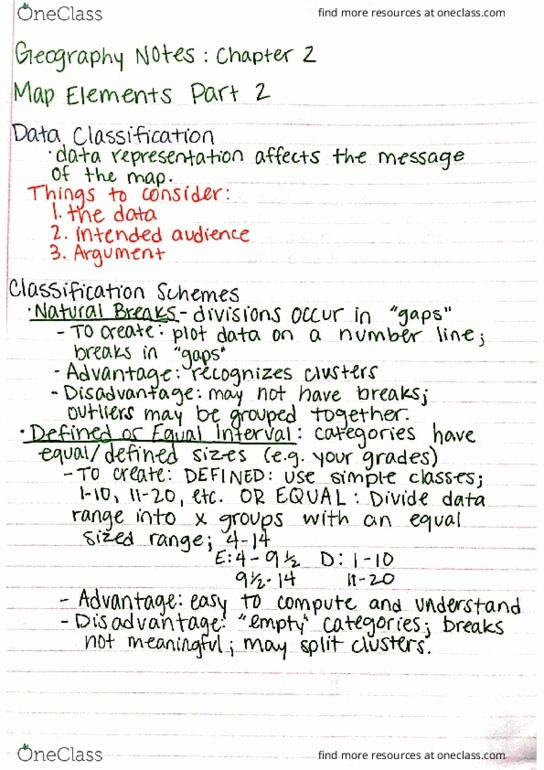 OneClass
find more resources at oneclass.com
Geography Notes: Chapter 2
Map Elements Part 2
Data Classification
·data representation affects the message
of the map.
Things to consider:
1. the data
2. intended audience
3. Argument
Classification Schemes
·Natural Breaks - divisions occur in "gaps"
- To create: plot data on a number line;
breaks in "gaps"
- Advantage: recognizes clusters
- Disadvantage: may not have breaks;
outliers may be grouped together.
·Defined or Equal Interval: categories have
equal/defined sizes (e.g. your grades)
- To create: DEFINED: use simple classes;
1-10, 11-20, etc. OR EQUAL: Divide data
range into x groups with an equal
sized range; 4-14
E: 4-9½ D: 1-10
9½-14 11-20
- Advantage: easy to compute and understand
- Disadvantage: "empty" categories; breaks
not meaningful; may split clusters.
OneClass
find more resources at oneclass.com